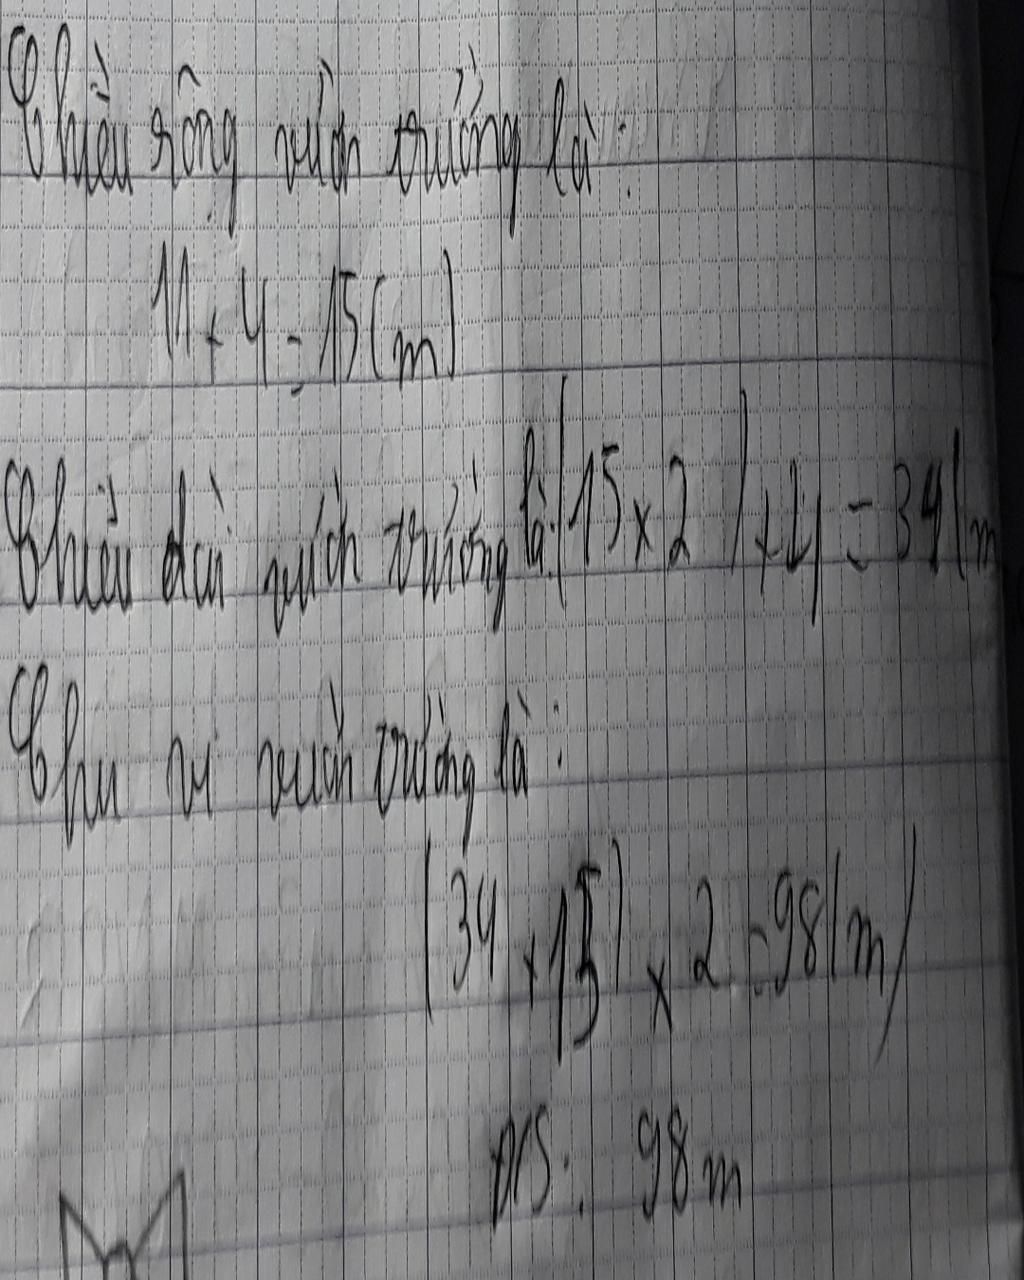 Chiều rộng vườn trường là:
11 + 4 = 15 (m)
Chiều dài vườn trường là: (15 x 2) + 4 = 34 (m
Chu vi vườn trường là:
(34 + 15) x 2 = 98 (m)
Đ/S: 98 m